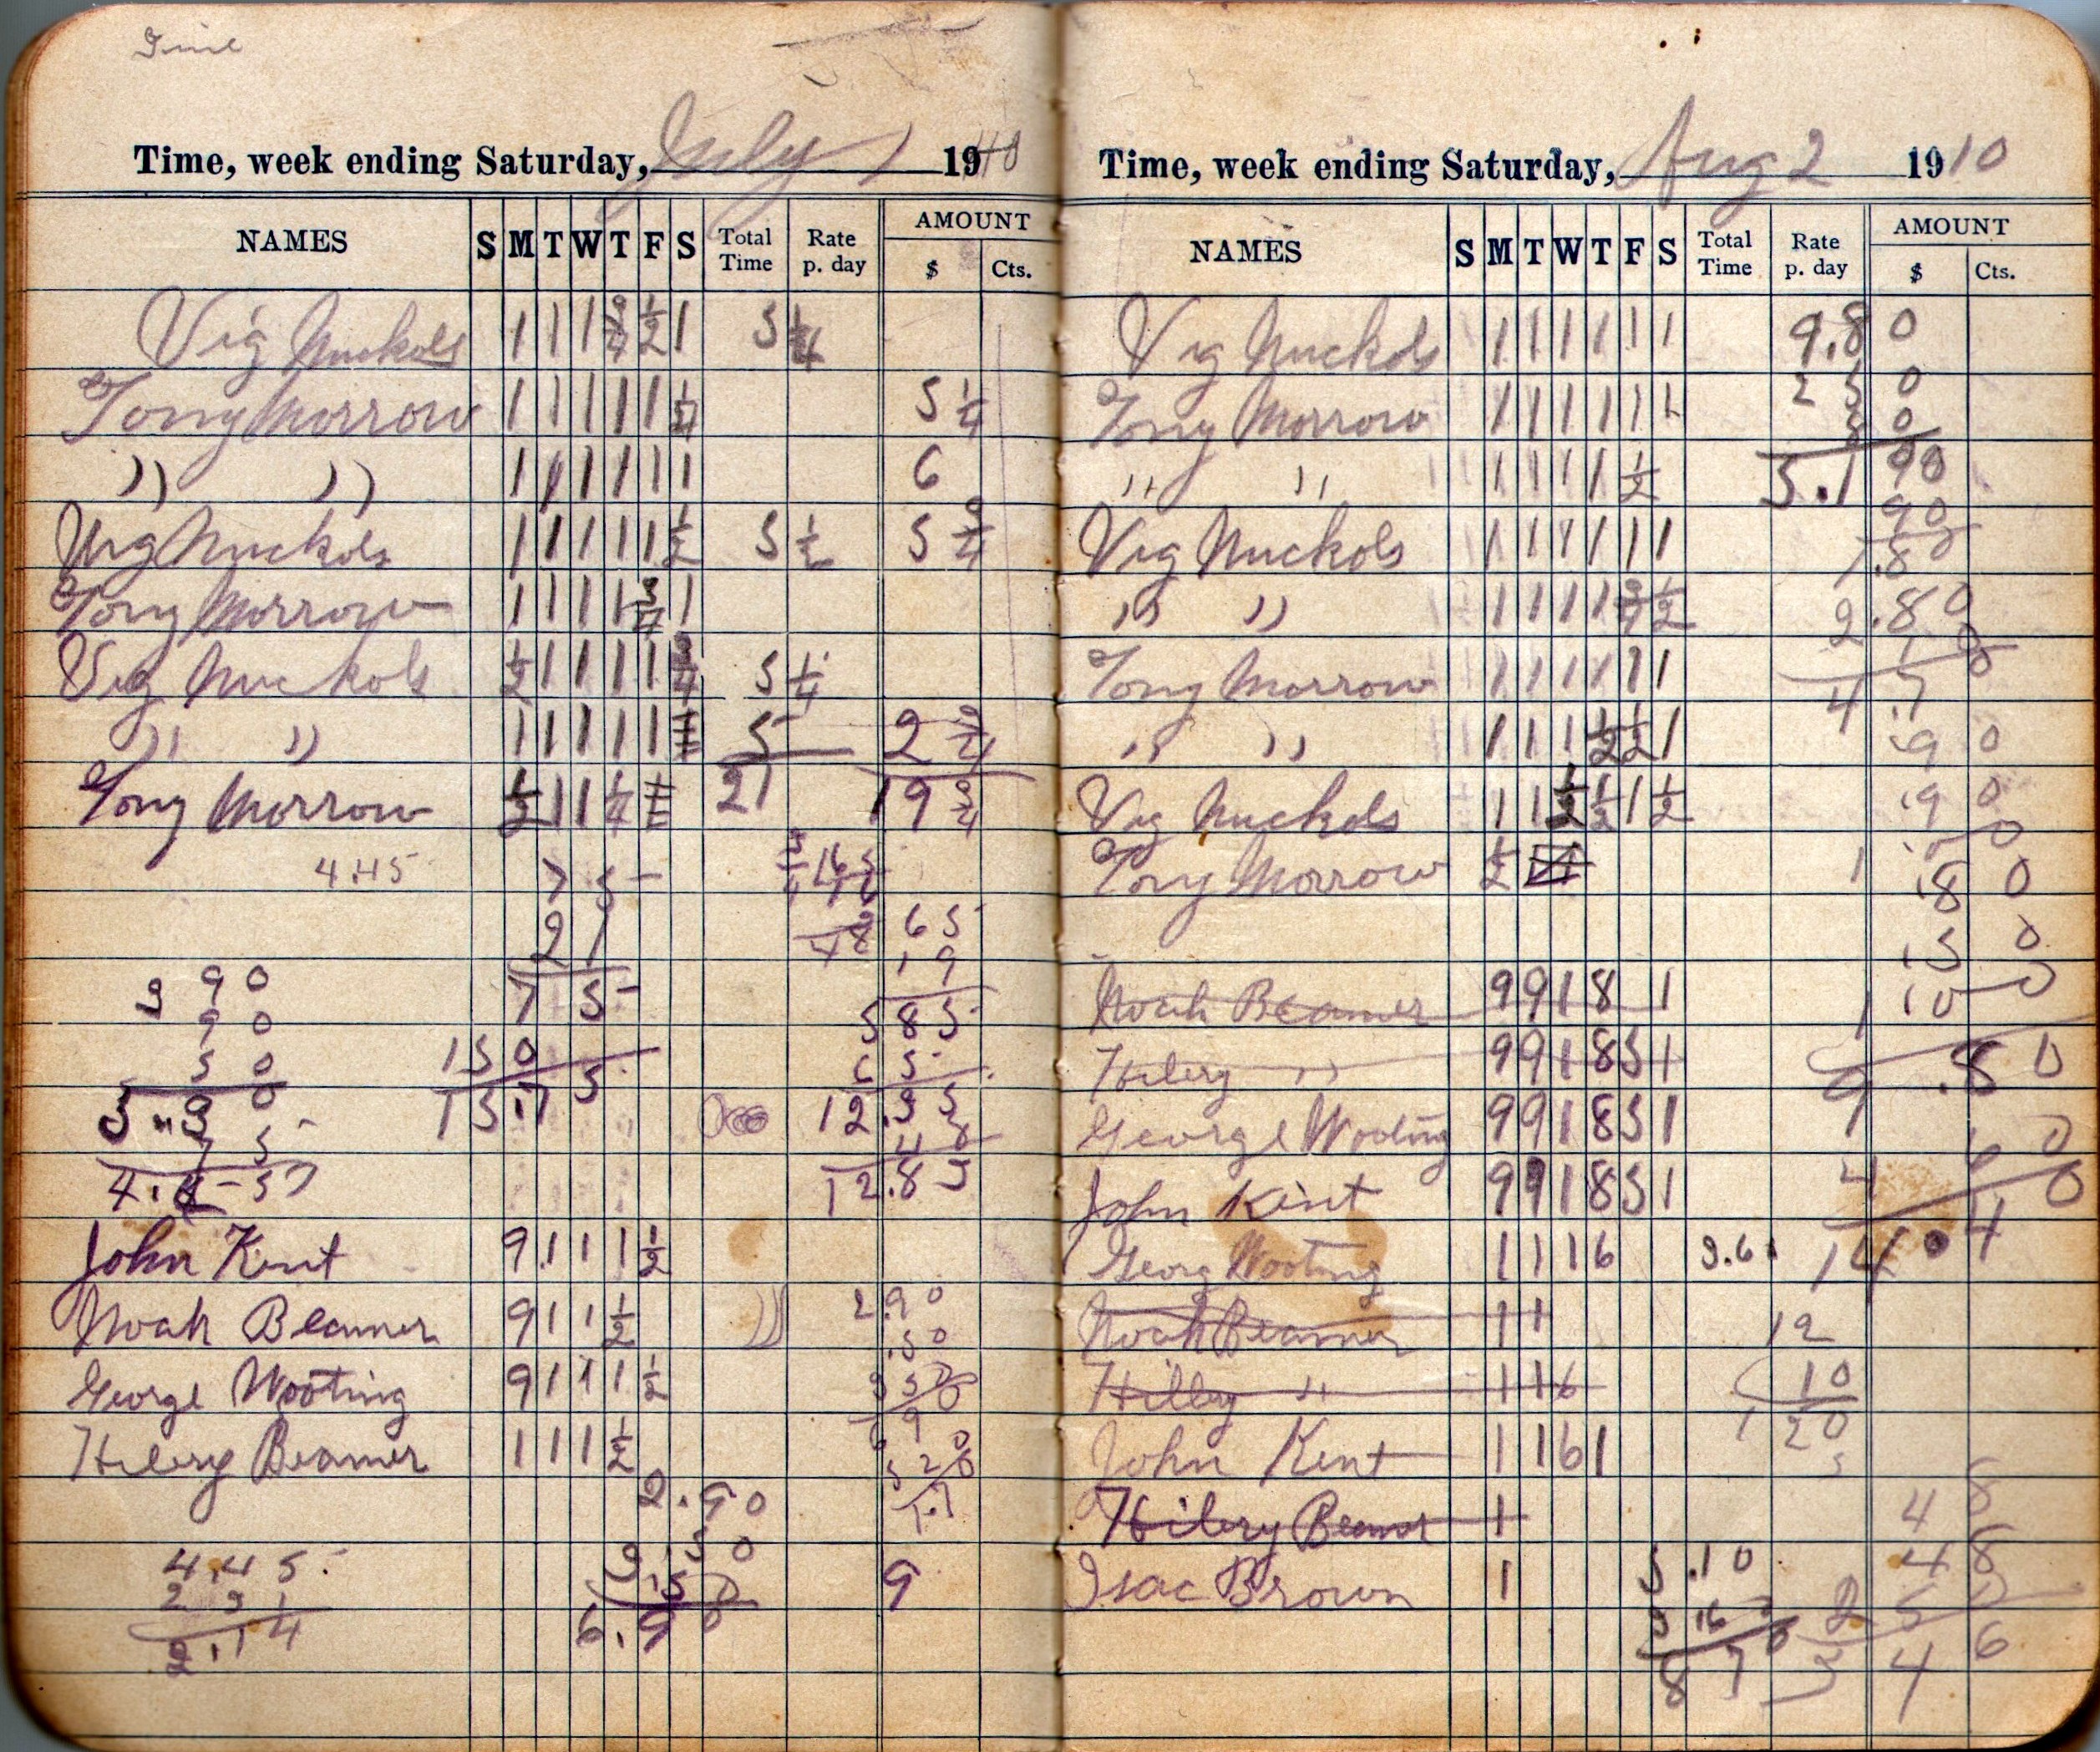 Time
Time, week ending Saturday, July 1 1910
NAMES S M T W T F S Total Time Rate p. day AMOUNT $ Cts.
Vig Nuckols 1 1 1 3/4 1/2 1 5 1/4
Tony Morrow 1 1 1 1 1 1/4 5 1/4
" " 1 1 1 1 1 1 6
Vig Nuckols 1 1 1 1 1 1/2 5 1/2 5 3/4
Tony Morrow 1 1 1 1 3/4 1
Vig Nuckols 1/2 1 1 1 1 3/4 5 1/4
" " 1 1 1 1 1 5 2 3/4
Tony Morrow 1/2 1 1 1/4 21 19 3/4
4.45 7 5
2 1 48 65
3 90 7 5 19
90 150 5 85
50 15.75 65
5.30 12.35
75 48
4.55 12.83
John Kent 9 1 1 1 1/2
Noah Beamer 9 1 1 1/2 2.90
.50
George Wooting 9 1 1 1 1/2
Hilery Beamer 1 1 1 1/2
2.90
4.45 3.50 9
2 31 .50
2.14 6.90
Time, week ending Saturday, Aug 2 1910
NAMES S M T W T F S Total Time Rate p. day AMOUNT $ Cts.
Vig Nuckols 1 1 1 1 1 1 9.80
Tony Morrow 1 1 1 1 1 1 2 50
" " 1 1 1 1 1/2 5.1
Vig Nuckols 1 1 1 1 1 1 .80
" " 1 1 1 1 3/4 1/2 2.80
Tony Morrow 1 1 1 1 1 1 4.7
" " 1 1 1 1/2 1/2 1 .90
Vig Nuckols 1 1 1/2 1/2 1 1/2 .90
Tony Morrow 1/2 1 .80
.50
Noah Beamer 9 9 1 8 1 1 10
Hilery " 9 9 1 8 5 1 9.80
George Wooting 9 9 1 8 5 1
John Kent 9 9 1 8 5 1 4 60
Georg Wooting 1 1 1 6 3.6 14.4
Noah Beamer 1 1 12
Hillery " 1 1 6 10
John Kent 1 1 6 1 1 20
Hilery Beamer 1 4 8
Isac Brown 1 5.10 4 8
3 16 2 5
8 7 3 4 6